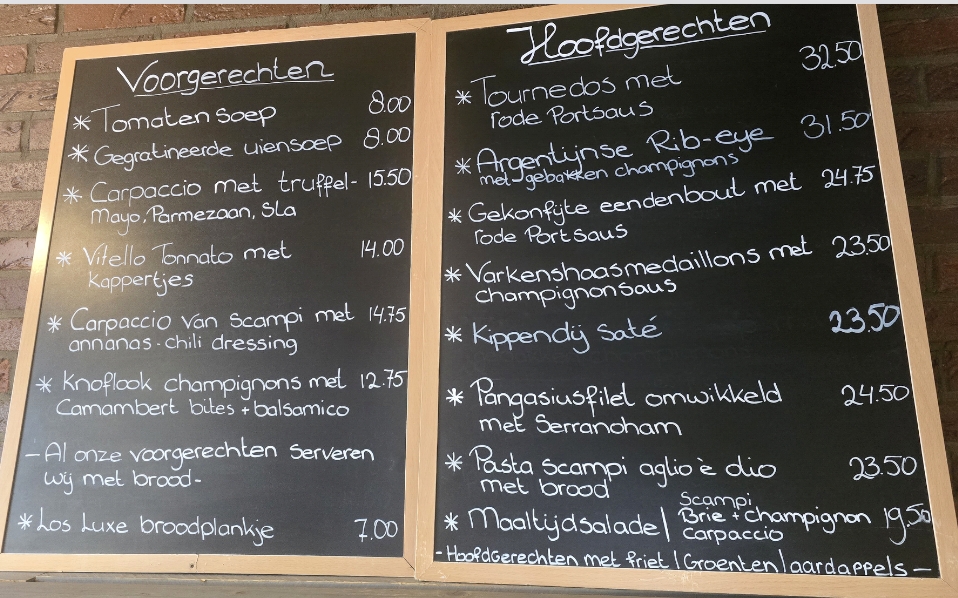 Voorgerechten
* Tomaten soep 8.00
* Gegratineerde uiensoep 8.00
* Carpaccio met truffel- 15.50
Mayo, Parmezaan, Sla
* Vitello Tonnato met 14.00
kappertjes
* Carpaccio van Scampi met 14.75
annanas-chili dressing
* Knoflook champignons met 12.75
Camambert bites + balsamico
- Al onze voorgerechten serveren
wij met brood-
* Los Luxe broodplankje 7.00
Hoofdgerechten
* Tournedos met 32.50
rode Portsaus
* Argentijnse Rib-eye 31.50
met gebakken champignons
* Gekonfijte eendenbout met 24.75
rode Portsaus
* Varkenshaasmedaillons met 23.50
champignonsaus
* Kippendij Saté 23.50
* Pangasiusfilet omwikkeld 24.50
met Serranoham
* Pasta scampi aglio è olio 23.50
met brood
Scampi
* Maaltijdsalade | Brie + champignon 19.50
carpaccio
- Hoofdgerechten met friet | Groenten | aardappels -